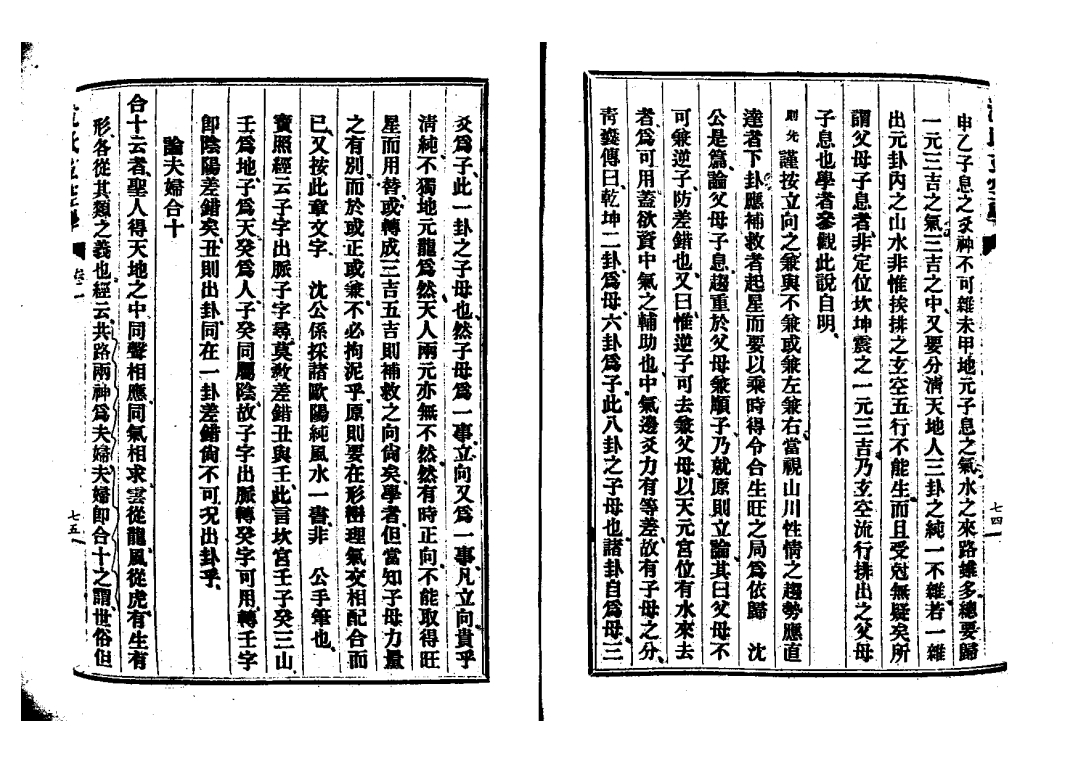 沈氏玄空學
申乙子息之爻神不可雜未甲地元子息之氣水之來路雖多總要歸
一元三吉之氣三吉之中又要分清天地人三卦之純一不雜若一雜
出元卦內之山水非惟挨排之玄空五行不能生而且受尅無疑矣所
謂父母子息者非定位坎坤震之一元三吉乃玄空流行排出之父母
子息也學者參觀此說自明
則先 謹按立向之兼與不兼或兼左兼右當視山川性情之趨勢應直
達者下卦應補救者起星而要以乘時得令合生旺之局爲依歸 沈
公是篇論父母子息趨重於父母兼順子乃就原則立論其曰父母不
可兼逆子防差錯也又曰惟逆子可去兼父母以天元宮位有水來去
者爲可用蓋欲資中氣之輔助也中氣邊爻力有等差故有子母之分
靑囊傳曰乾坤二卦爲母六卦爲子此八卦之子母也諸卦自爲母三
七四
爻爲子此一卦之子母也然子母爲一事立向又爲一事凡立向貴乎
清純不獨地元龍爲然天人兩元亦無不然然有時正向不能取得旺
星而用替或轉成三吉五吉則補救之向尙矣學者但當知子母力量
之有別而於或正或兼不必拘泥乎原則要在形巒理氣交相配合而
已又按此章文字 沈公係採諸歐陽純風水一書非 公手筆也
寶照經云子字出脈子字尋莫敎差錯丑與壬此言坎宮壬子癸三山
壬爲地子爲天癸爲人子癸同屬陰故子字出脈轉癸字可用轉壬字
卽陰陽差錯矣丑則出卦同在一卦差錯尙不可况出卦乎
論夫婦合十
合十云者聖人得天地之中同聲相應同氣相求雲從龍風從虎有生有
形各從其類之義也經云共路兩神爲夫婦夫婦卽合十之謂世俗但
卷二
七五